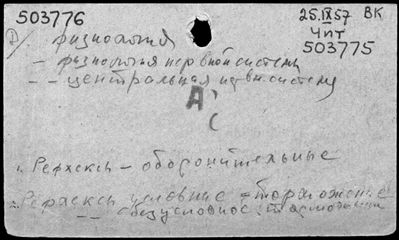 503776
25.IX57 ВК
Чит
503775
физиология
— физиология нервной системы
— — центральная нервн систему
А
1. Рефлексы — оборонительные
2. Рефлексы условные — торможение
— — безусловное торможение